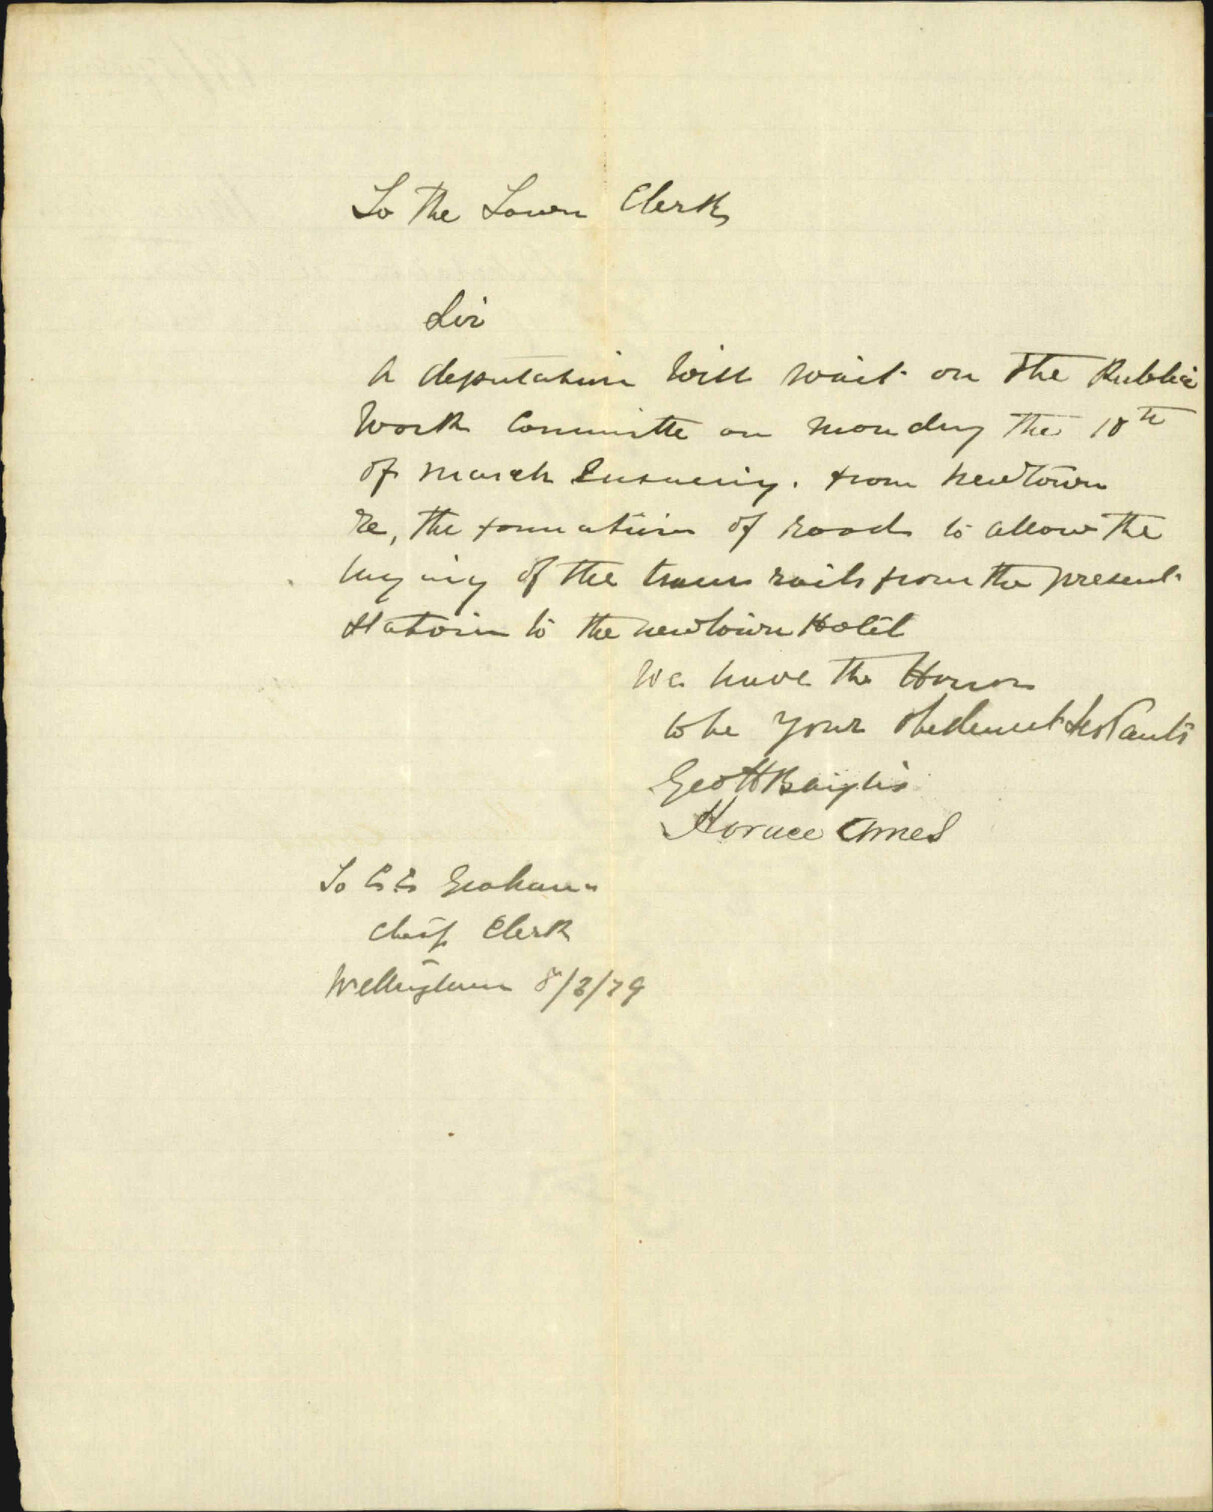 To the Town Clerk
Sir
A deputation will wait on the Public
Work Committe on monday the 10th
of march Ensueing. from newtown
Re, the formation of road to allow the
laying of the tram rails from the present
station to the newtown Hotel
We have the Honor
to be your obedient servants
Geo H Baylis
Horace Ames
To Graham
Chief Clerk
Wellington 8/3/79